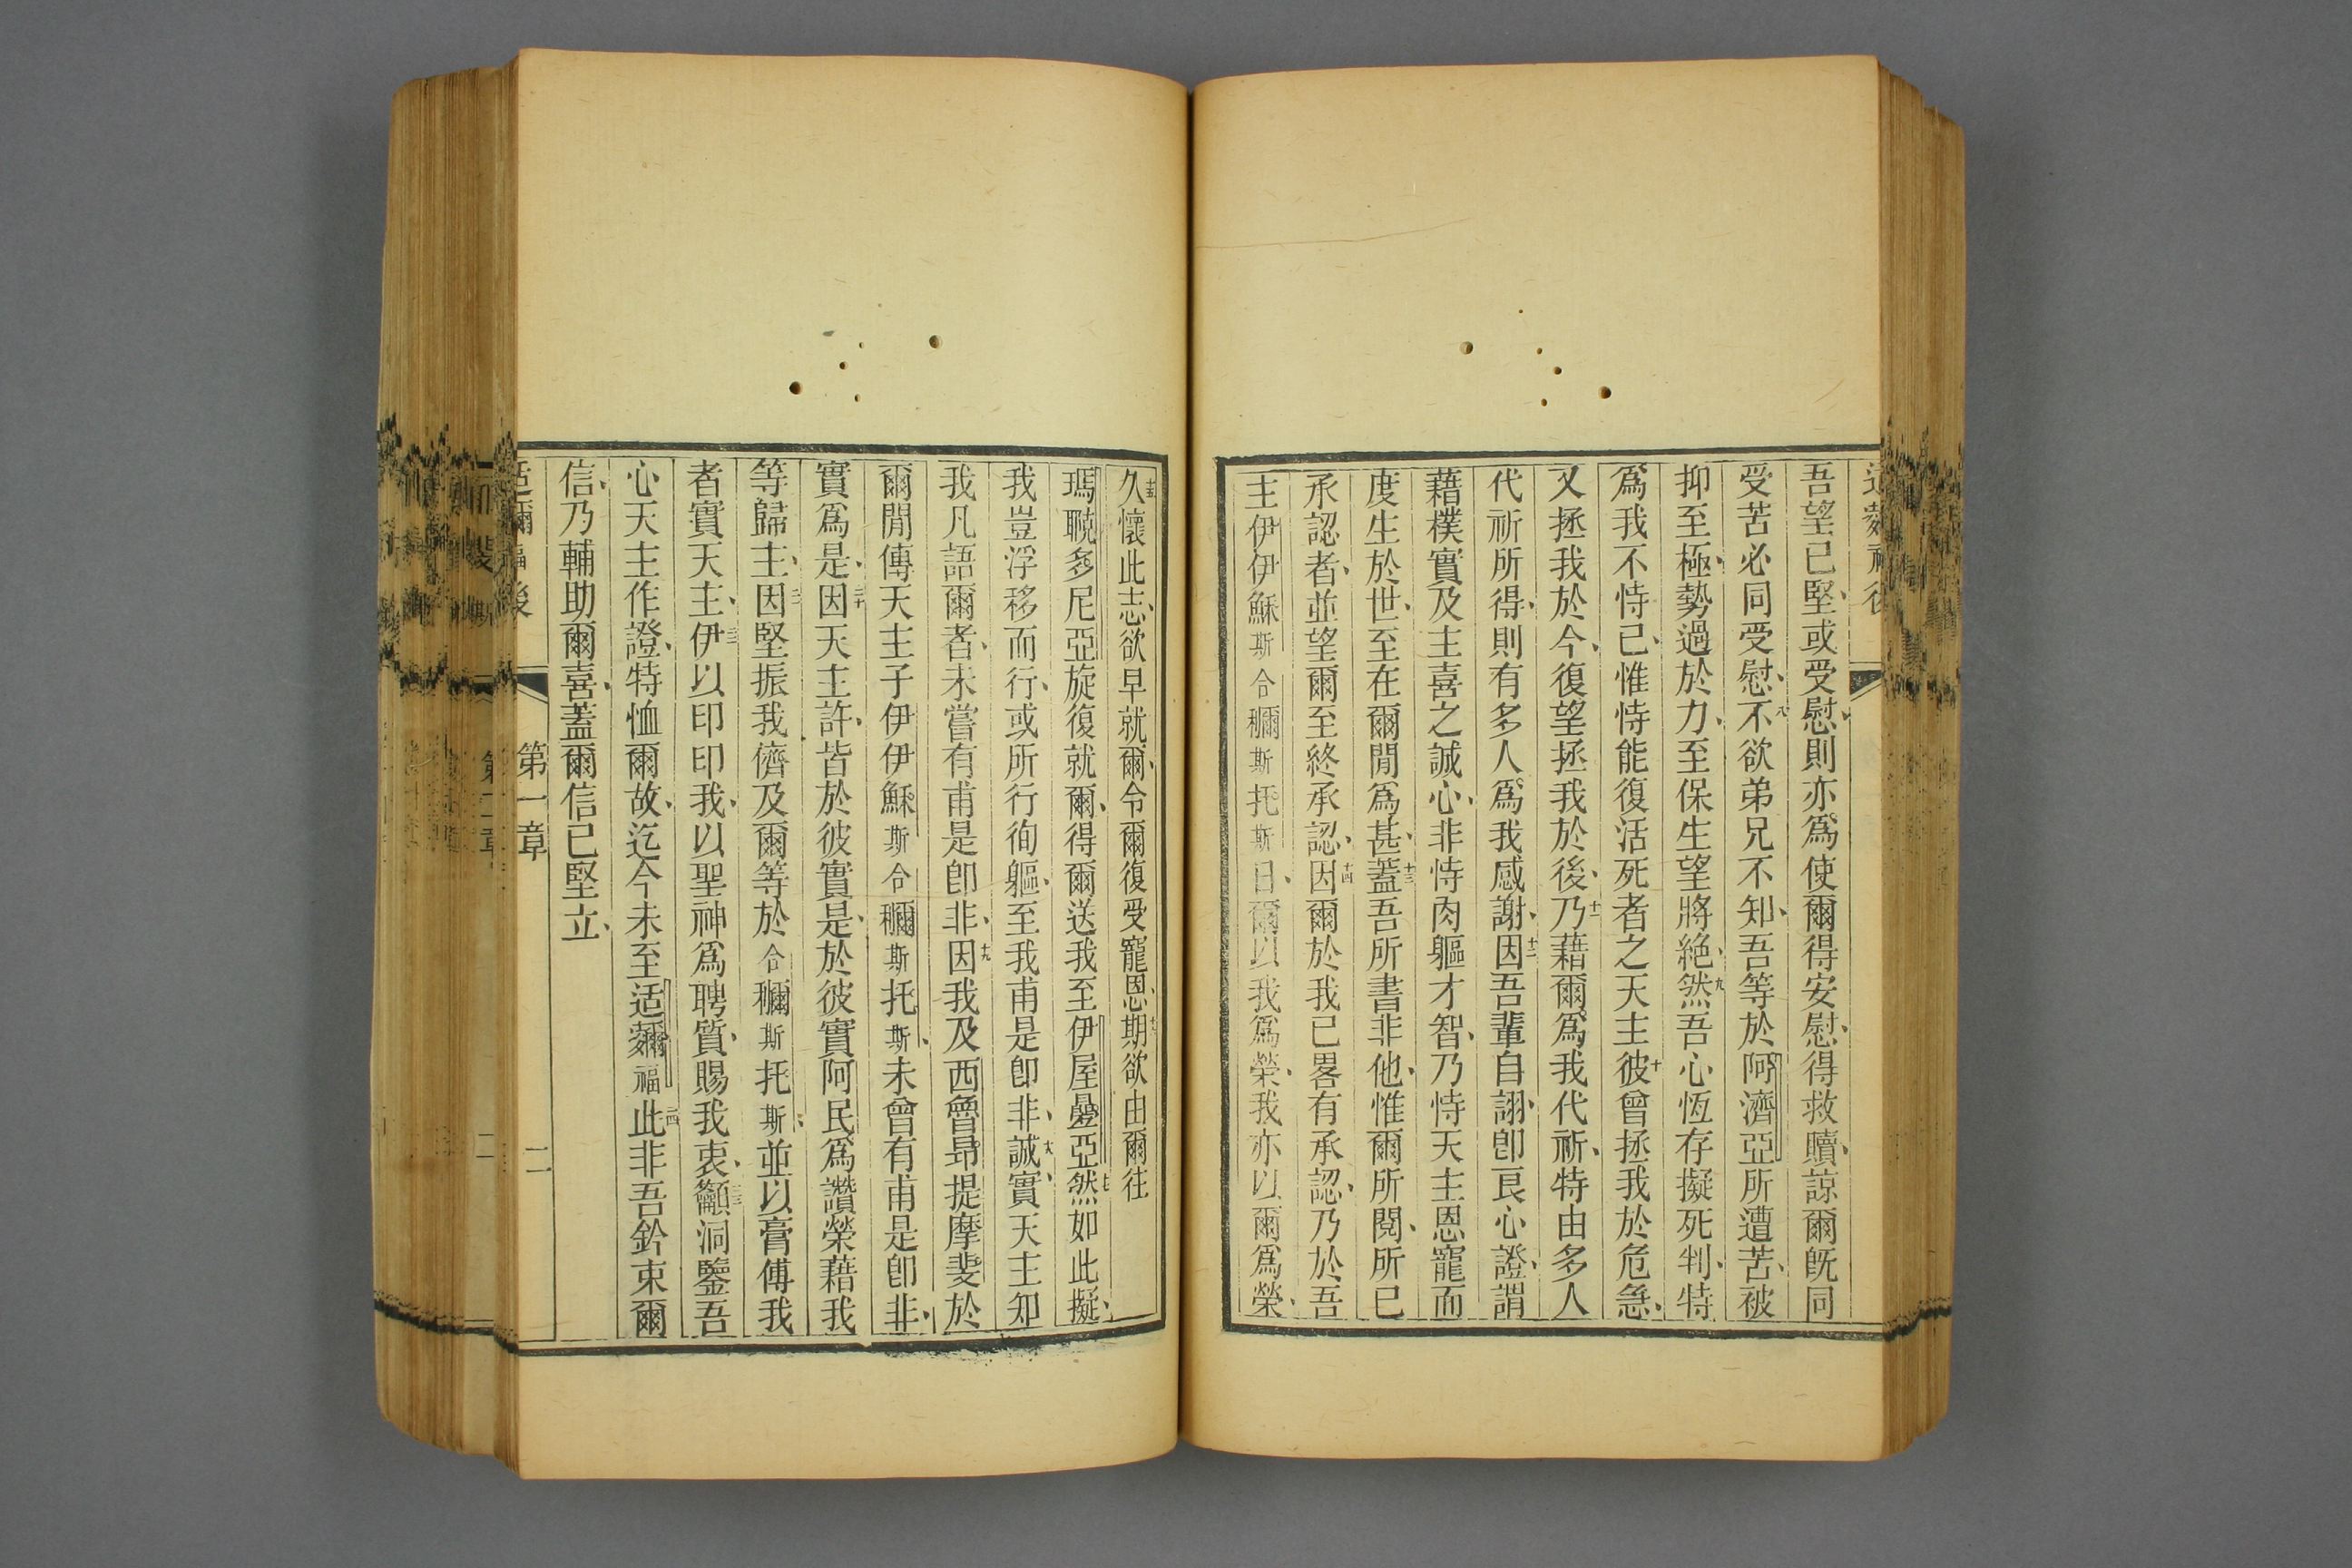 吾望已堅、或受慰、則亦爲使爾得安慰、得救贖、諒爾旣同
受苦、必同受慰、八不欲弟兄不知、吾等於阿濟亞所遭苦、被
抑至極、勢過於力、至保生望將絕、九然吾心恆存擬死判、特
爲我不恃己、惟恃能復活死者之天主、十彼曾拯我於危急、
又拯我於今、復望拯我於後、十一乃藉爾爲我代祈、特由多人
代祈所得、則有多人爲我感謝、十二因吾輩自詡、卽良心證、謂
藉樸實及主喜之誠心、非恃肉軀才智、乃恃天主恩寵而
度生於世、至在爾閒爲甚、十三蓋吾所書非他、惟爾所閱、所已
承認者、並望爾至終承認、十四因爾於我已畧有承認、乃於吾
主伊伊穌斯合穪斯托斯日、爾以我爲榮、我亦以爾爲榮、
十五久懷此志、欲早就爾、令爾復受寵恩、十六期欲由爾往
瑪聎多尼亞、旋復就爾、得爾送我至伊屋疊亞、十七然如此擬、
我豈浮移而行、或所行徇軀、至我甫是卽非、十八誠實天主知
我凡語爾者、未嘗有甫是卽非、十九因我及西魯昻提摩斐於
爾閒傳天主子伊伊穌斯合穪斯托斯、未曾有甫是卽非、
實爲是、二十因天主許、皆於彼實是、於彼實阿民、爲讚榮藉我
等歸主、二一因堅振我儕及爾等於合穪斯托斯、並以膏傅我
者實天主、二二伊以印印我、以聖神爲聘質、賜我衷、二三籲洞鑒吾
心天主作證、特恤爾故、迄今未至适薾福、二四此非吾鈐束爾
信、乃輔助爾喜、蓋爾信已堅立、
适薾福後
第一章
二